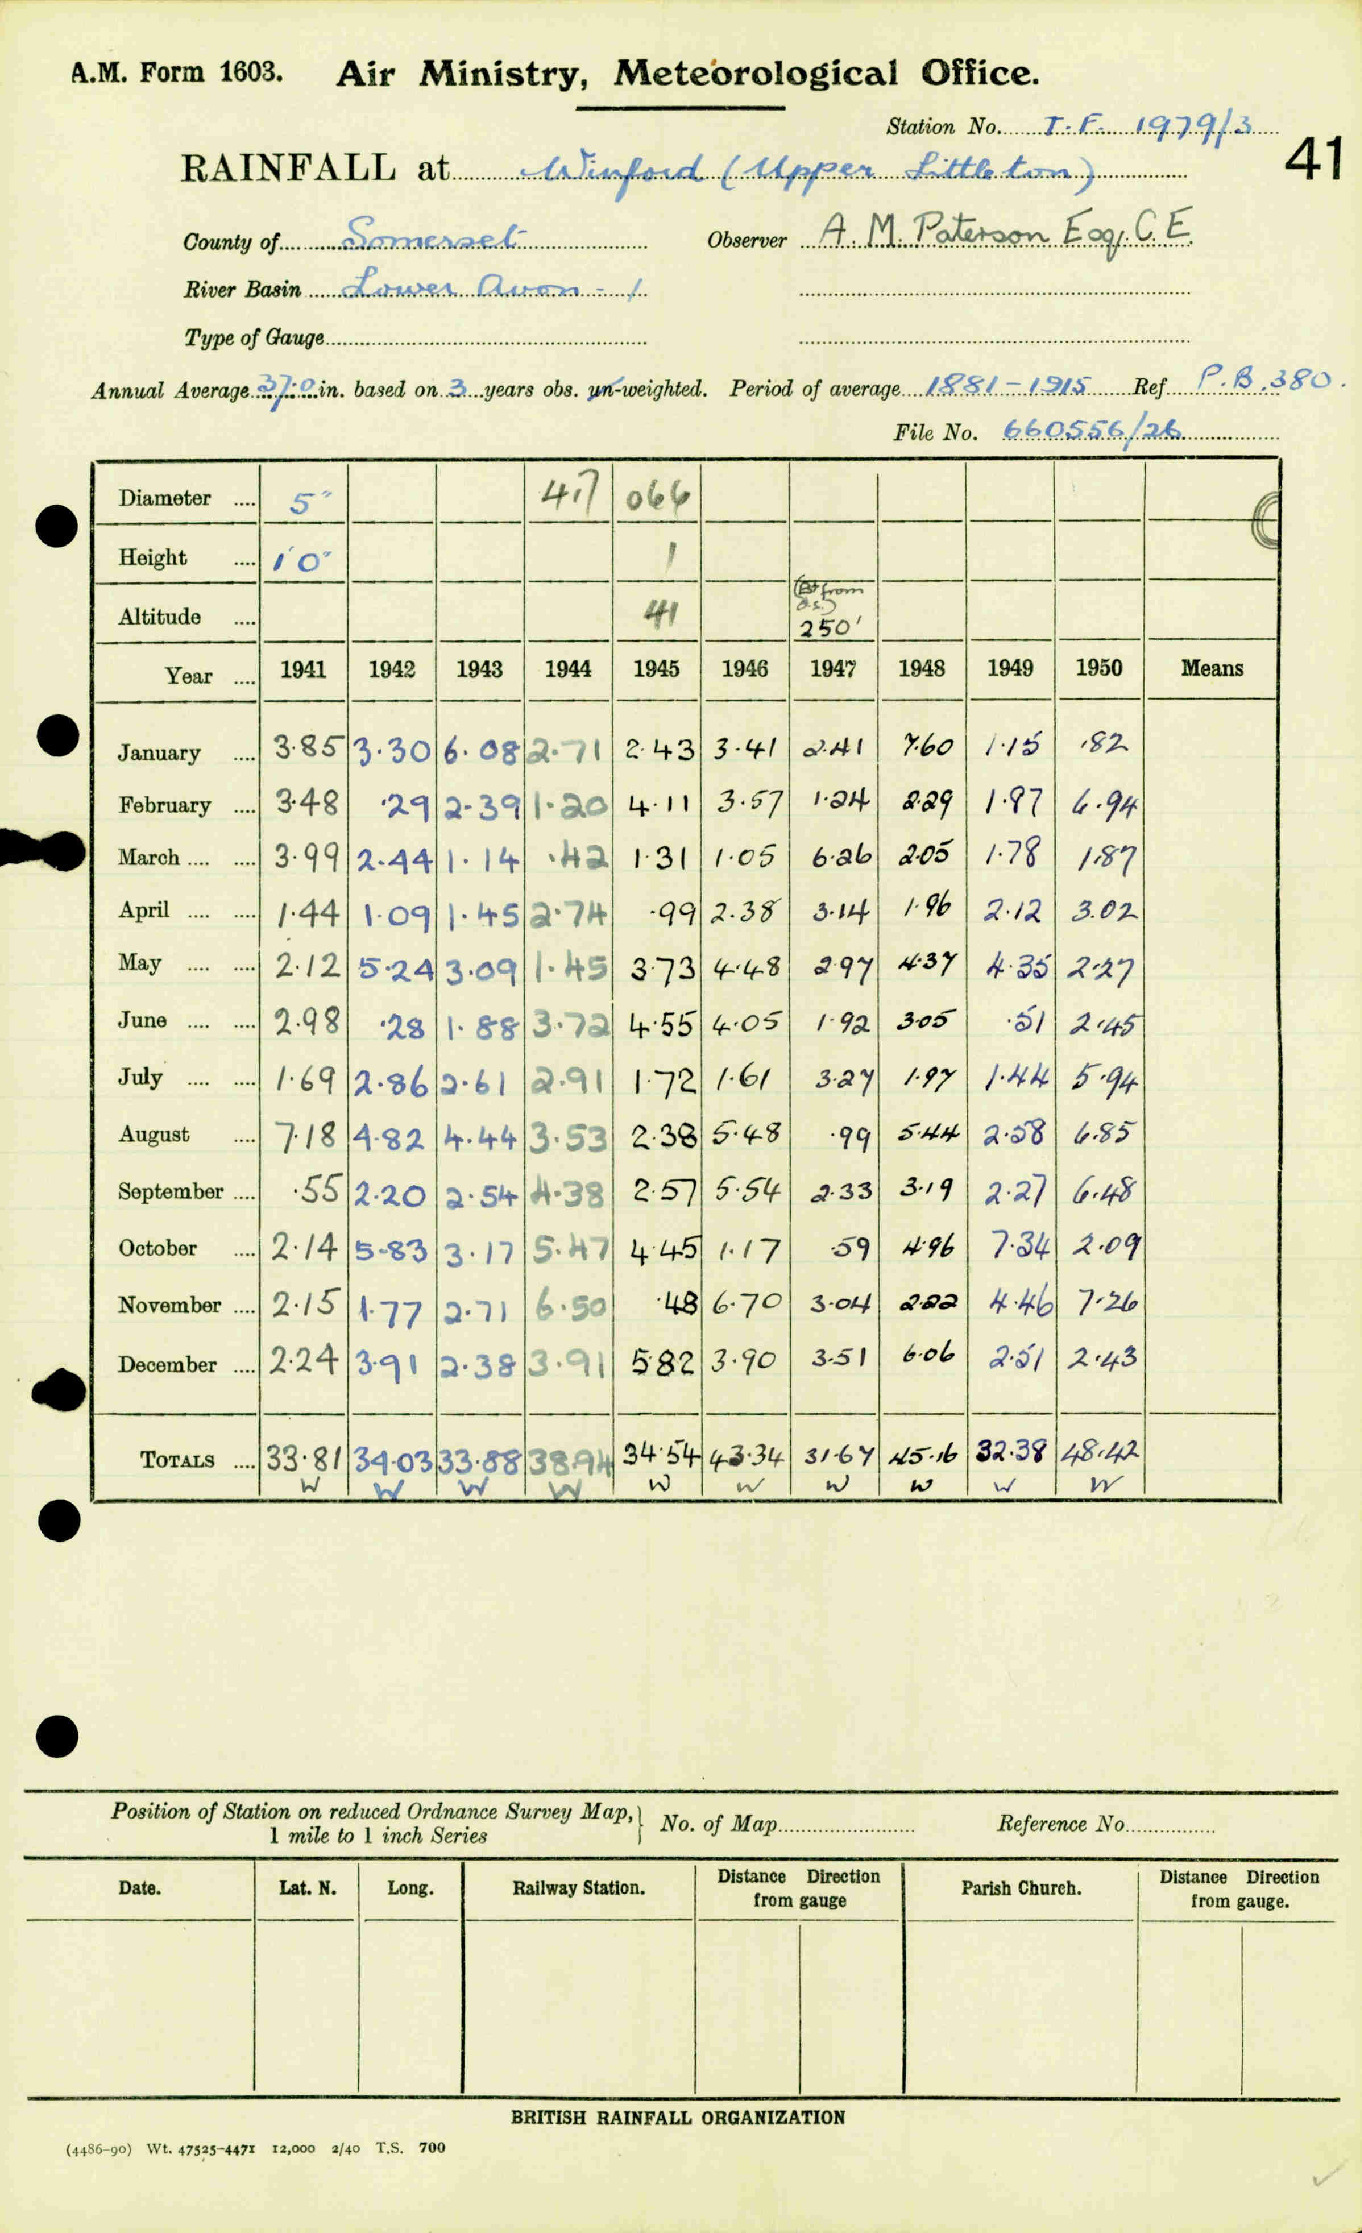 A.M. Form 1603. Air Ministry, Meteorological Office.
Station No. T.F. 1979/3
41
RAINFALL at Winford (Upper Littleton)
County of Somerset Observer A. M. Paterson Esq. C.E.
River Basin Lower Avon - 1
Type of Gauge
Annual Average 37.0 in. based on 3 years obs. un-weighted. Period of average 1881-1915 Ref P.B. 380.
File No. 660556/26
Diameter .... 5" 4.7 066
Height .... 1'0" 1
Altitude .... 41 from O.S.) 250'
Year .... 1941 1942 1943 1944 1945 1946 1947 1948 1949 1950 Means
January .... 3.85 3.30 6.08 2.71 2.43 3.41 2.41 7.60 1.15 .82
February .... 3.48 .29 2.39 1.20 4.11 3.57 1.24 2.29 1.87 6.94
March .... .... 3.99 2.44 1.14 .42 1.31 1.05 6.26 2.05 1.78 1.87
April .... .... 1.44 1.09 1.45 2.74 .99 2.38 3.14 1.96 2.12 3.02
May .... .... 2.12 5.24 3.09 1.45 3.73 4.48 2.97 4.37 4.35 2.27
June .... .... 2.98 .28 1.88 3.72 4.55 4.05 1.92 3.05 .51 2.45
July .... .... 1.69 2.86 2.61 2.91 1.72 1.61 3.27 1.97 1.44 5.94
August .... 7.18 4.82 4.44 3.53 2.38 5.48 .99 5.44 2.58 6.85
September .... .55 2.20 2.54 4.38 2.57 5.54 2.33 3.19 2.27 6.48
October .... 2.14 5.83 3.17 5.47 4.45 1.17 .59 4.96 7.34 2.09
November .... 2.15 1.77 2.71 6.50 .48 6.70 3.04 2.22 4.46 7.26
December .... 2.24 3.91 2.38 3.91 5.82 3.90 3.51 6.06 2.51 2.43
TOTALS .... 33.81 34.03 33.88 38.94 34.54 43.34 31.67 45.16 32.38 48.42
W W W W W W W W W W
Position of Station on reduced Ordnance Survey Map, } No. of Map Reference No.
1 mile to 1 inch Series
Date. Lat. N. Long. Railway Station. Distance Direction from gauge Parish Church. Distance Direction from gauge.
BRITISH RAINFALL ORGANIZATION
(4486-90) Wt. 47525-4471 12,000 2/40 T.S. 700